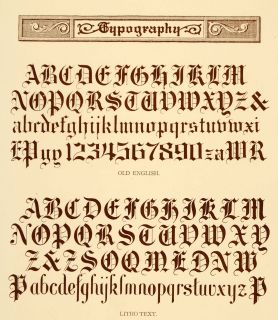 Typography
ABCDEFGHIJKLM
NOPQRSTUVWXYZ&
abcdefghijklmnopqrstuvwxi
LPyy1234567890zaWR
OLD ENGLISH.
ABCDEFGHIJKLM
NOPQRSTUVWXYZ
&ZSOQMEDNW
Pabcdefghijklmnopqrstuvwxyz
LITHO TEXT.